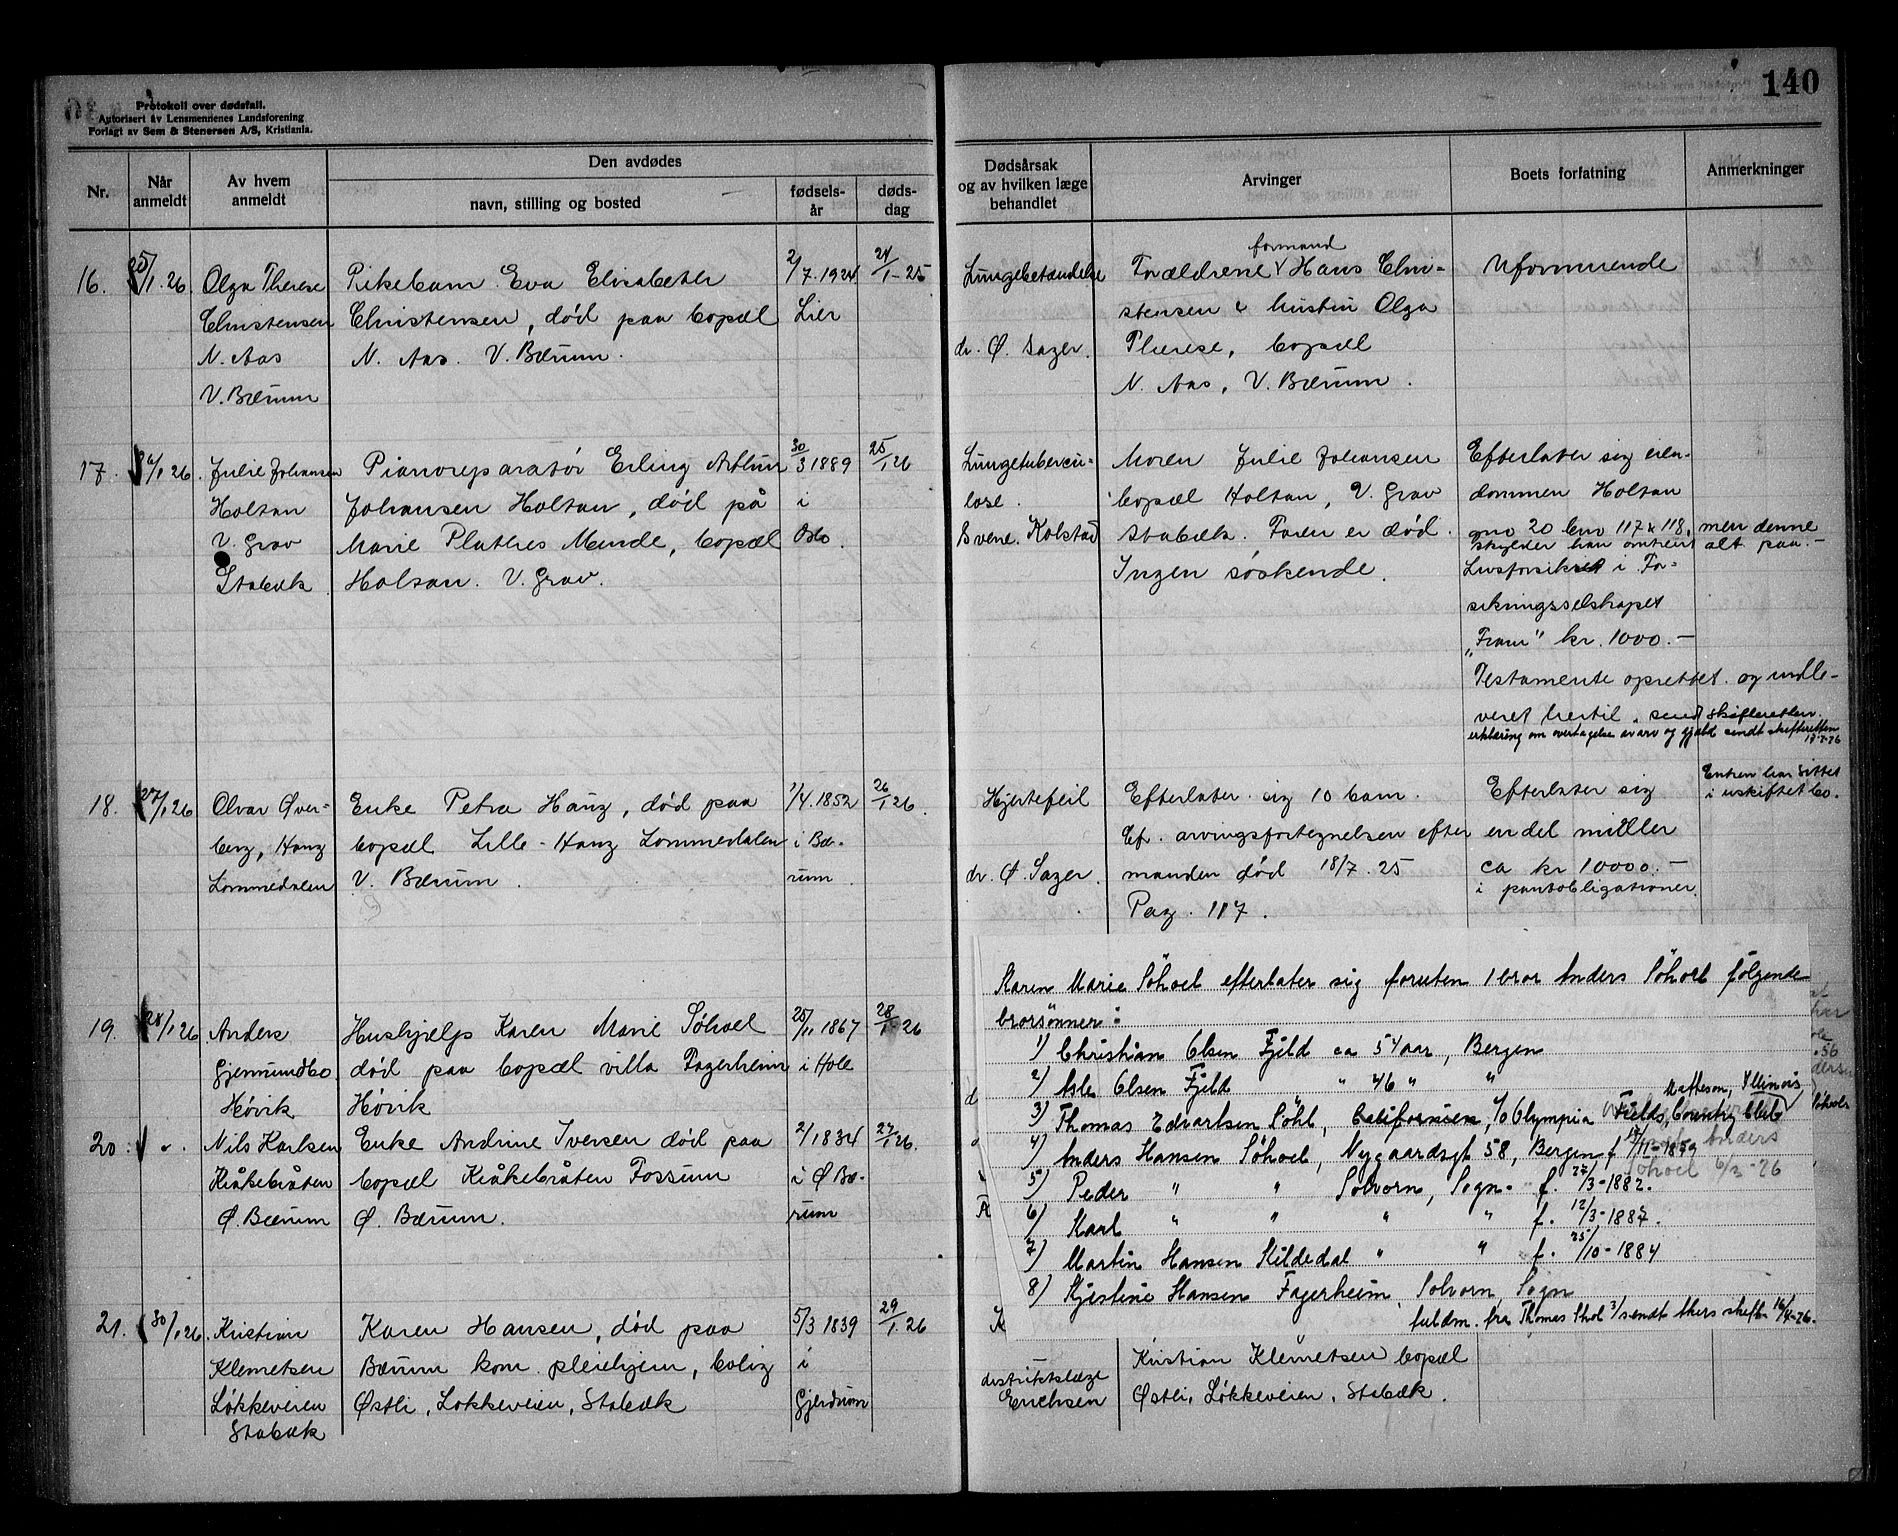 140
Protokoll over dødsfall.
Autorisert av Lensmennenes Landsforening
Forlagt av Sem & Stenersen A/S, Kristiania.
Nr.
Når anmeldt
Av hvem anmeldt
Den avdødes
navn, stilling og bosted
fødsels-år
døds-dag
Dødsårsak og av hvilken læge behandlet
Arvinger
Boets forfatning
Anmerkninger
16. 25/1.26
Olga Therese
Christensen
N. Aas
V. Bærum
Pikebarn Eva Elisabeth
Christensen, død paa bopæl
N. Aas. V. Bærum.
2/7.1924
Lier
24/1-25
Lungebetændelse
dr. Ø. Sager.
Forældrene formand Hans Chri-
stensen & hustru Olga
Therese, bopæl
N. Aas, V. Bærum.
Uformuende
17. 26/1 26
Julie Johansen
Holtan
V. Grav
Stabæk
Pianoreparatør Erling Arthur
Johansen Holtan, død på
Marie Plathes Minde, bopæl
Holtan. V. Grav.
30/3 1889
i
Oslo.
25/1 26
Lungetubercu-
lose.
Svene. Kolstad
Moren Julie Johansen
bopæl Holtan, V. Grav
Stabæk. Faren er død.
Ingen søskende.
Efterlater sig eien-
dommen Holtan
gno 20 bno 117 & 118, men denne
skylder han omtrent alt paa.-
Livsforsikret i For-
sikringsselskapet
„Fram" kr. 1000.-
Testamente oprettet og indle-
veret hertil. sendt skifteretten.
erklæring om overtagelse av arv og gjæld sendt skifteretten
18. 27/1 26
Olvar Øver-
berg, Haug
Lommedalen
Enke Petra Haug, død paa
bopæl Lille-Haug Lommedalen
V. Bærum.
1/4.1852
i Bæ-
rum
26/1 26
Hjertefeil
dr. Ø. Sager.
Efterlater sig 10 barn.
Cfr. arvingsfortegnelsen efter
manden død 18/7.25
Pag. 117.
Efterlater sig
en del midler
ca kr 10000.-
i pantobligationer.
Enken har sittet
i uskiftet bo.
19. 28/1 26
Anders
Gjermundbo
Høvik
Hushjælp Karen Marie Søhoel
død paa bopæl villa Fagerheim
Høvik
25/11 1867
i Hole
28/1 26
Karen Marie Söhoel efterlater sig foruten 1 bror Anders Söhoel følgende
brorsönner:
1) Christian Olsen Fjeld ca 54 aar, Bergen
2) Asle Olsen Fjeld " 46 " "
Matteson, Illinois
3) Thomas Edvartsen Söhl, Californien, c/o Olympia Fields, Country Club
4) Anders Hansen Söhoel, Nygaardsgt 58, Bergen f. 19/11-1879
5) Peder " " Solvorn, Sogn. f. 27/3-1882.
6) Karl " " " " f. 12/3-1887.
7) Martin Hansen Kildedal " " f. 25/10-1884
8) Kjestine Hansen Fagerheim, Solvorn, Sogn
20. " .
Nils Karlsen
Kråkebråten
Ø. Bærum
Enke Andrine Iversen død paa
bopæl Kråkebråten Fossum
Ø. Bærum.
2/1 1834
i Ø Bæ-
rum
27/1 26.
21. 30/1 26
Kristian
Klemetsen
Løkkeveien
Stabæk
Karen Hansen, død paa
Bærum kom. pleiehjem, bolig
Østli, Løkkeveien, Stabæk
5/3 1839
i
Gjerdrum
29/1.26
distriktslæge
Erichsen
Kristian Klemetsen bopæl
Østli, Løkkeveien, Stabæk.